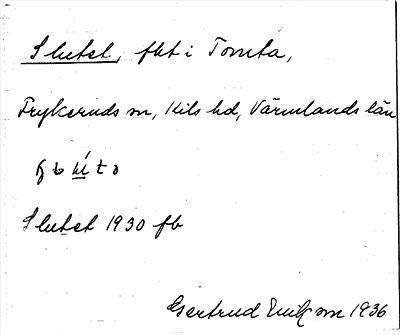 Slutet, fkt i Tomta,
Frykeruds sn, Kils hd, Värmlands län
Slutet 1930 fb
Gertrud 1936